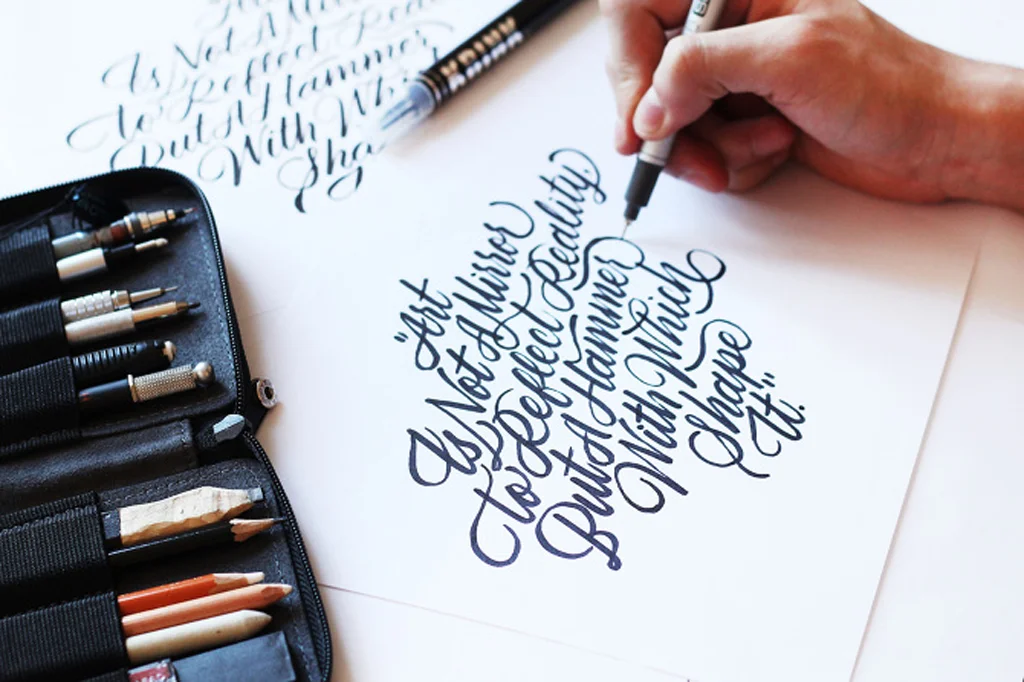 Is Not A M
to Reflect Rea
But A Hammer
With Whi
Sha
KRINK
"Art
Is Not A Mirror
to Reflect Reality,
But A Hammer
With Which
Shape
It."